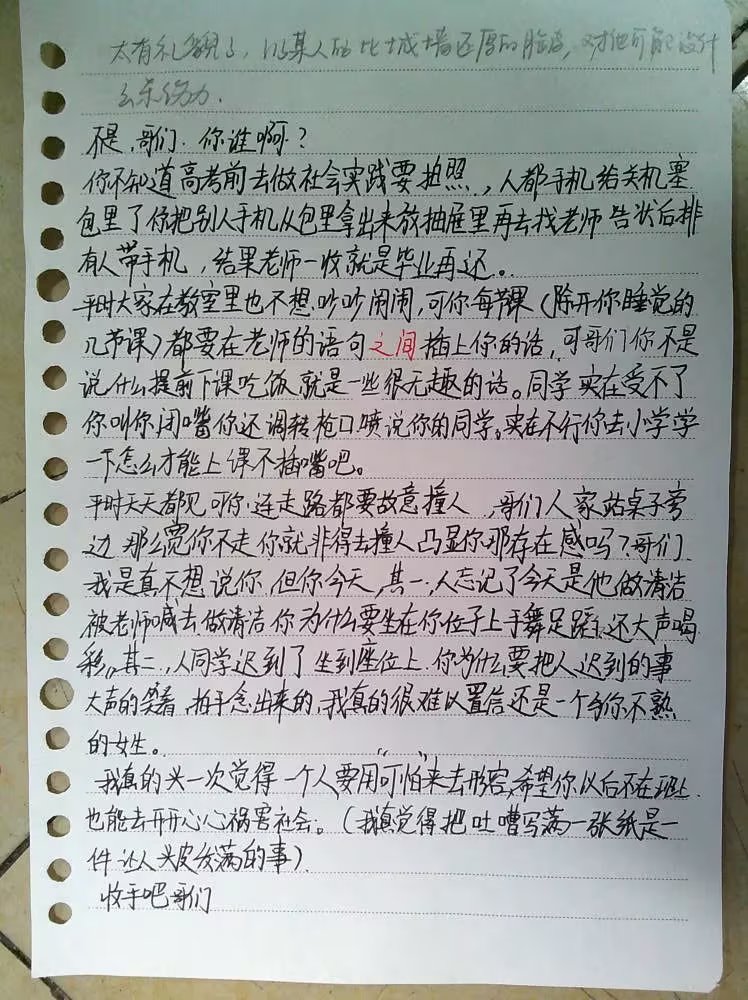 太有礼貌了,以某人的比城墙还厚的脸皮,对他可能没什
么杀伤力.
不是,哥们.你谁啊?
你不知道高考前去做社会实践要拍照,人都手机给关机塞
包里了你把别人手机从包里拿出来放抽屉里再去找老师告状后排
有人带手机,结果老师一收就是毕业再还。
平时大家在教室里也不想吵吵闹闹,可你每节课(除开你睡觉的
几节课)都要在老师的语句之间插上你的话,可哥们你不是
说什么提前下课吃饭就是一些很无趣的话。同学实在受不了
你叫你闭嘴你还调转枪口喷说你的同学。实在不行你去小学学
一下怎么才能上课不插嘴吧。
平时天天都见可你连走路都要故意撞人,哥们人家站桌子旁
边那么宽你不走你就非得去撞人凸显你那存在感吗?哥们
我是真不想说你,但你今天,其一,人忘记了今天是他做清洁
被老师喊去做清洁你为什么要坐在你位子上手舞足蹈,还大声喝
彩。其二,人同学迟到了坐到座位上你为什么要把人迟到的事
大声的笑着,拍手念出来的,我真的很难以置信还是一个与你不熟
的女生。
我真的头一次觉得一个人要用“可怕”来去形容,希望你以后不在班上
也能去开开心心祸害社会。(我真觉得把吐嘈写满一张纸是一
件让人头皮发满的事)
收手吧哥们